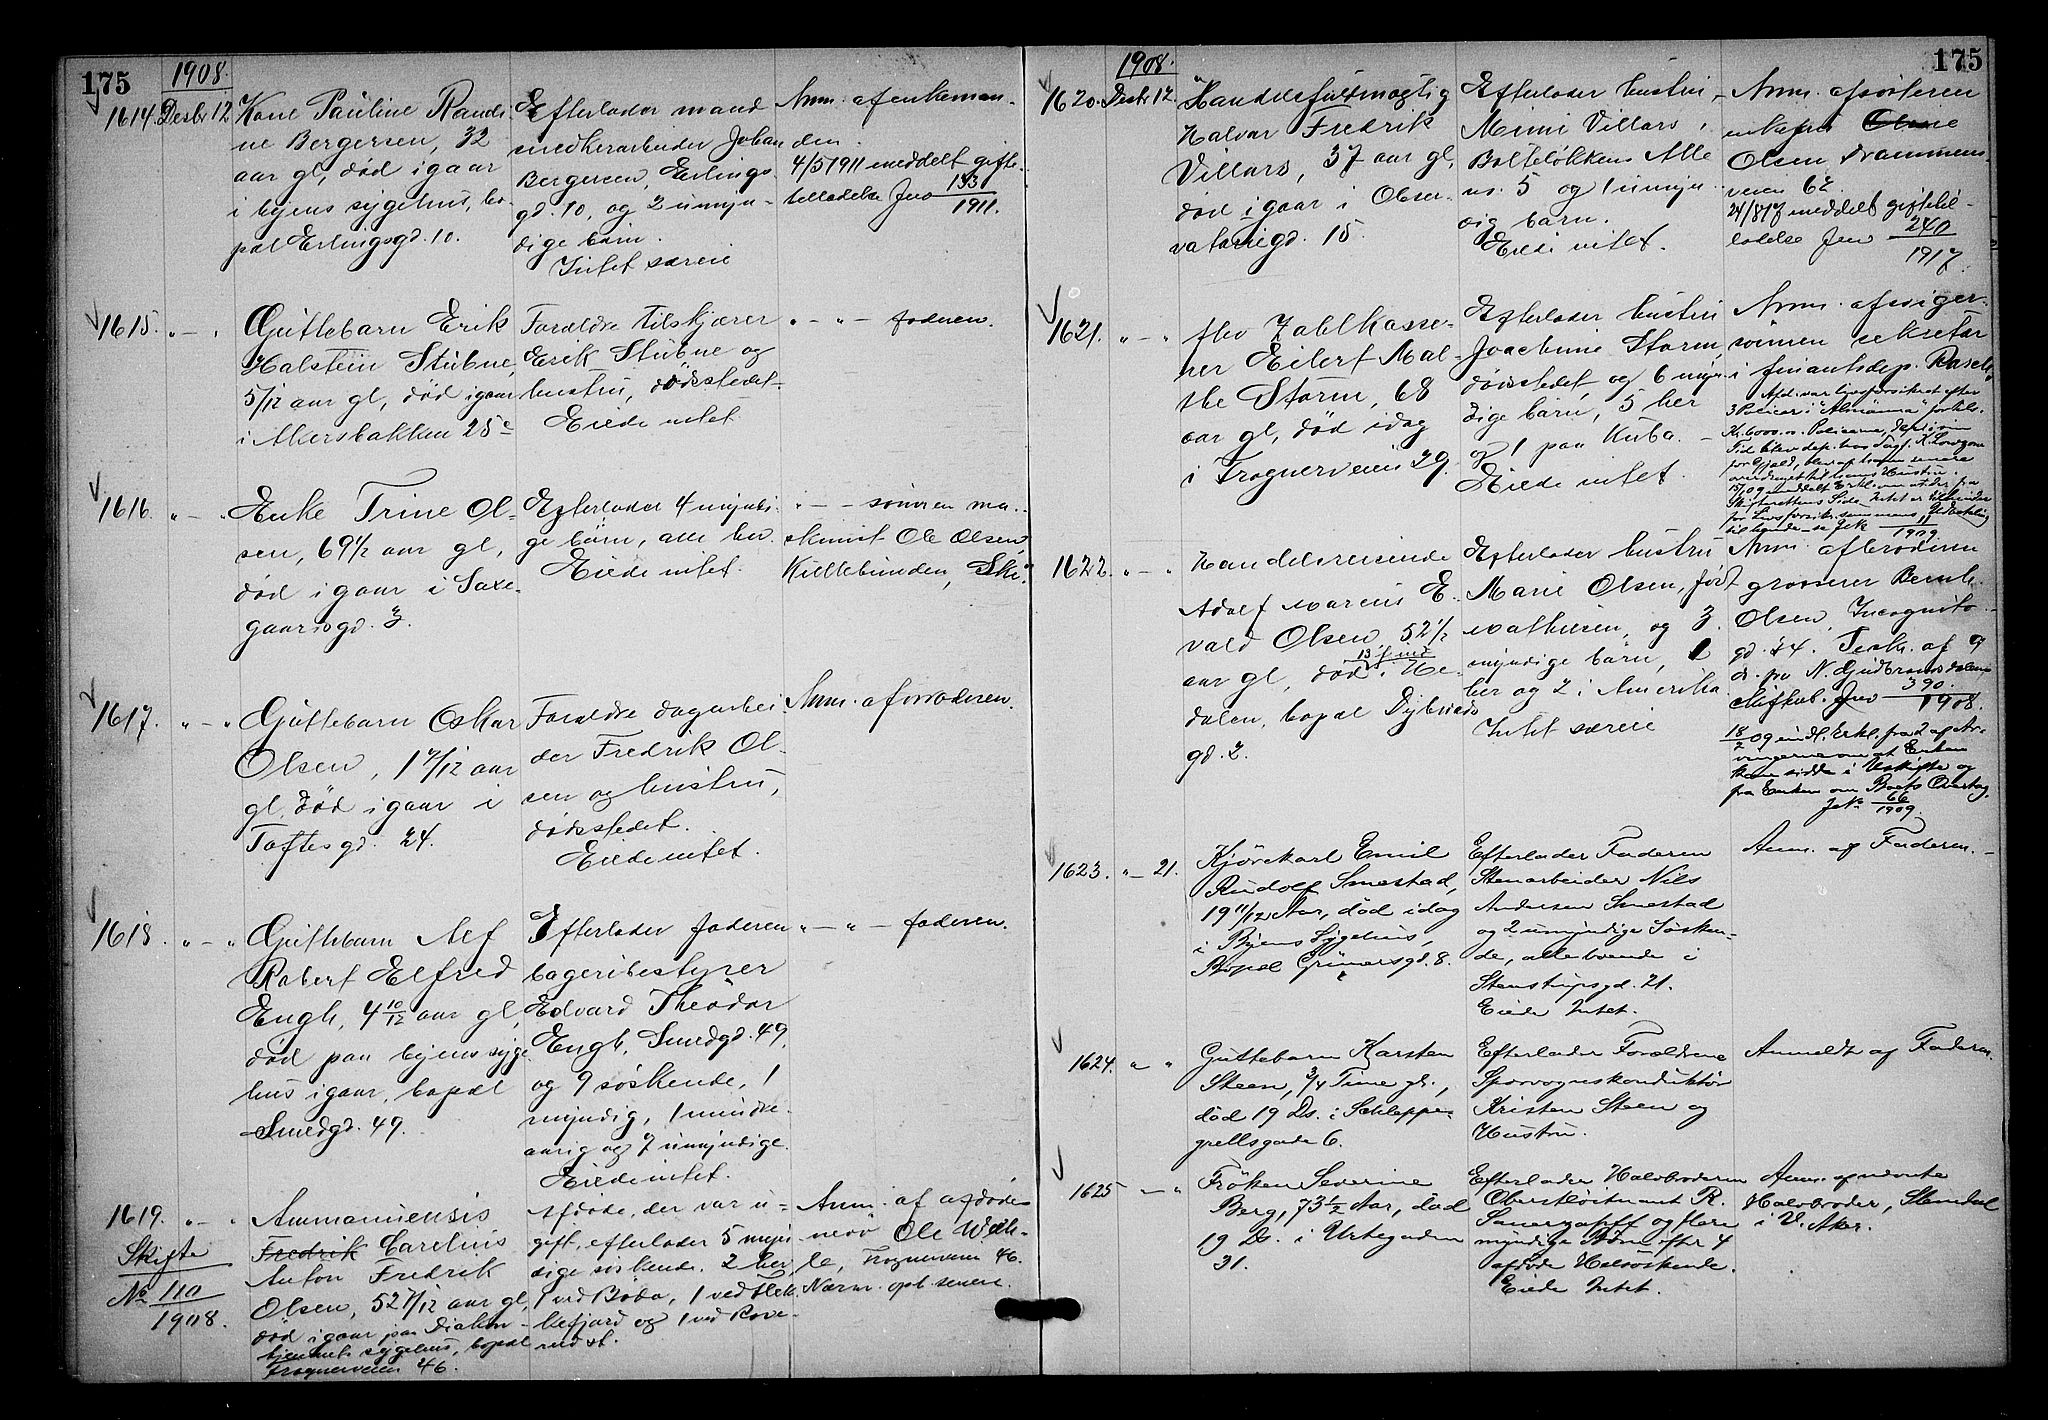 175
1908.
1614. Desbr 12
Kone Pauline Randi-
ne Bergersen, 32
aar gl, død igaar
i byens sygehus, bo-
pæl Erlingsgd. 10.
Efterlader mand
snedkerarbeider Johan
Bergersen, Erlings
gd. 10, og 2 umyn-
dige børn.
Intet særeie
Anm. af enkeman-
den.
4/5 1911 meddelt gifte-
tilladelse Jno 153
1911.
1615. " — "
Guttebarn Erik
Halstein Stubne,
5/12 aar gl, død igaar
i Akersbakken 25 c
Forældre tilskjærer
Erik Stubne og
hustru, dødsstedet
Eiede intet
" — " — faderen.
1616. " — "
Enke Trine Ol-
sen, 69 1/2 aar gl,
død igaar i Saxe-
gaardsgd. 3.
Efterlader 4 myndi-
ge børn, alle her.
Eiede intet.
" — — sønnen ma-
skinist Ole Olsen,
Kittelbunden, Ski.
1617. " — "
Guttebarn Oskar
Olsen, 1 7/12 aar
gl, død igaar i
Toftesgd. 24.
Forældre dagarbei-
der Fredrik Ol-
sen og hustru,
dødsstedet.
Eiede intet.
Anm. af moderen.
1618. " — "
Guttebarn Alf
Robert Elfred
Engh, 4 10/12 aar gl,
død paa byens syge
hus igaar, bopæl
Smedgd. 49.
Efterlader faderen
bageribestyrer
Edvard Theodor
Engh, Smedgd. 49,
og 9 søskende, 1
myndig, 1 mindre-
aarig og 7 umyndige.
Eiede intet.
" — " — faderen.
1619. " — "
Skifte
No 110
1908.
Ammanuensis
Fredrik Carelius
Anton Fredrik
Olsen, 52 7/12 aar gl,
død igaar paa Diakon-
hjemmets sygehus, bopæl
Frognerveien 46.
Afdøde, der var u-
gift, efterlader 5 myn
dige søskende. 2 her
1 ved Bodø, 1 ved Flek
kefjord og 1 ved
Anm. af afdødes
nevø Ole Weth-
le, Frognerveien 46.
Nærm. opl. senere.
175
1908.
1620. Desbr 12.
Handelsfuldmægtig
Halvar Fredrik
Villars, 37 aar gl,
død igaar i Obser-
vatoriegd. 15.
Efterlader hustru
Mimi Villars,
Bolteløkkens Alle
no. 5 og 1 umyn-
dig barn.
Eiede intet.
Anm. af søsteren
enkefru Olsne
Olsen Drammens-
veien 62
24/8 17 meddelt giftetil-
ladelse Jno 240
1917.
1621. " — "
fhv Zahlkasse-
rer Eilert Mal-
the Storm, 68
aar gl, død idag
i Frognerveien 29.
Efterlader hustru
Joachimie Storm,
dødsstedet, og 6 myn-
dige børn, 5 her
og 1 paa Kuba.
Eiede intet.
Anm. af sviger-
sønnen sekretær
i finantsdep. Rasch.
Afd. var livsforsikret efter
3 Policer i "Almänna" fortils.
Kr. 6000.00. Policerne, dep. i sin
1909.
1622. " — "
Handelsreisende
Adolf Marius E-
vald Olsen, 52 1/2
aar gl, død 13 f. md. i He-
dalen, bopæl Dybvads
gd. 2.
Efterlader hustru
Marie Olsen, født
Mathiesen, og 3
myndige børn, 1
her og 2 i Amerika.
Intet særeie
Anm. af broderen
grosserer Bernh.
Olsen, Incognito-
gd. 34. Teskr. af 9
ds. fra N. Gudbrandsdalens
skifteb. Jno 390.
1908.
18/2 09 indl. Erkl. fra 2 af Ar-
vingerne om at Enken
kan sidde i Uskifte og
fra Enken om Boets Overtag.
JNo 66
1909.
1623. " — 21.
Kjørekarl Emil
Rudolf Smestad,
19 11/12 Aar, død idag
i Byens Sygehus,
Bopæl Grünersgd. 8.
Efterlader Faderen
Stenarbeider Nils
Andersen Smestad
og 2 umyndige Søsken-
de, alle boende i
Stenstrupsgd. 21.
Eiede Intet.
Anm. af Faderen.
1624. " "
Guttebarn Karsten
Steen, 3/4 Time gl.,
død 19 Ds. i Schleppe-
grellsgade 6.
Efterlader Forældrene
Sporvognskonduktør
Kristen Steen og
Hustru.
Anmeldt af Faderen.
1625 " — "
Frøken Severine
Berg, 73 1/2 Aar, død
19 Ds. i Urtegaden
31.
Efterlader Halvbroderen
Oberstløitnant R.
og flere
myndige Børn efter 4
afdøde Halvsøskende.
Eiede Intet.
Anm. af nævnte
Halvbroder, Stendal
i V. Aker.